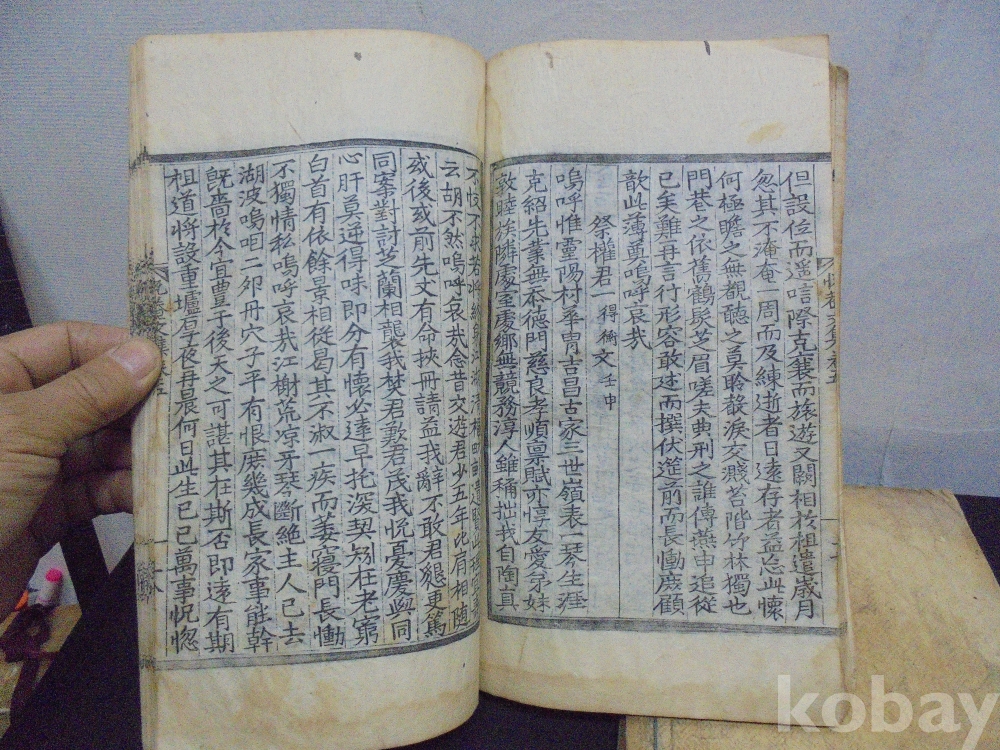 但設位而遥唁際克襄而旅遊又闕相於祖遣歲月
忽其不淹奄一周而及練逝者日遠存者益忩此懷
何極瞻之無覩聽之莫聆馨淚交濺苔階竹林獨也
門巷之依舊鶴髮芝眉嗟夫典刑之誰傳燕申追從
已矣難再言行形容敢廷而撰伏筵前而長慟庶顧
歆此薄奠嗚呼哀哉
祭權君一 得衡 文 壬申
嗚呼惟靈陽村華胄吉昌古家三世嶺表一琴生涯
克紹先業無忝德門慈良孝順禀賦亦惇友愛弟妹
敦睦族隣處室處鄉無競務淳人雖稱拙我自陶真
云胡不然嗚呼哀哉念昔交遊君少五年比肩相隨
或後或前先丈有命挾冊請益我辭不敢君懇更篤
同窓對討芝蘭相襲我焚君敷君茂我悅憂慶與同
心肝莫逆得味即分有懷必達早托深契矧在老窮
白首有依餘景相從曷其不淑一疾而萎寢門長慟
不獨情私嗚呼哀哉江榭荒凉牙琴斷絶主人已去
湖波嗚咽二卯丹穴子平有恨庶幾成長家事能幹
旣嗇於今宜豊于後天之可諶其在斯否即遠有期
祖道將設重壚石子夜再晨何日此生已已萬事怳惚